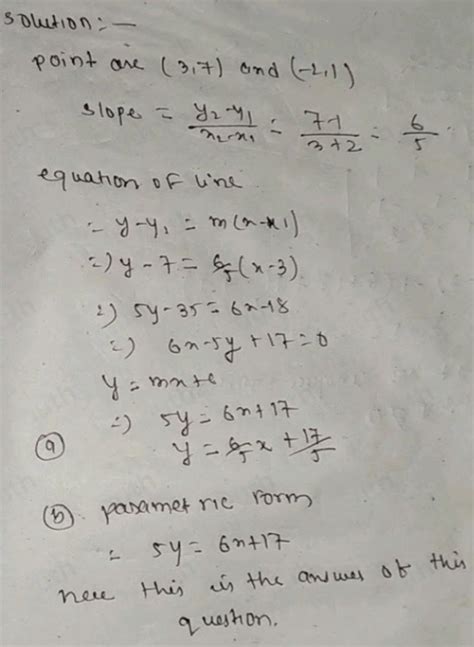 solution:—
point are (3,7) and (-2,1)
slope = y₂-y₁/x₂-x₁ = 7-1/3+2 = 6/5
equation of line
= y-y₁ = m(x-x1)
=) y-7 = 6/5(x-3)
=) 5y-35 = 6x-18
=) 6x-5y+17=0
y=mx+c
=) 5y=6x+17
(a) y = 6/5x + 17/5
(b) parametric form
= 5y=6x+17
here this is the answer of this
question.